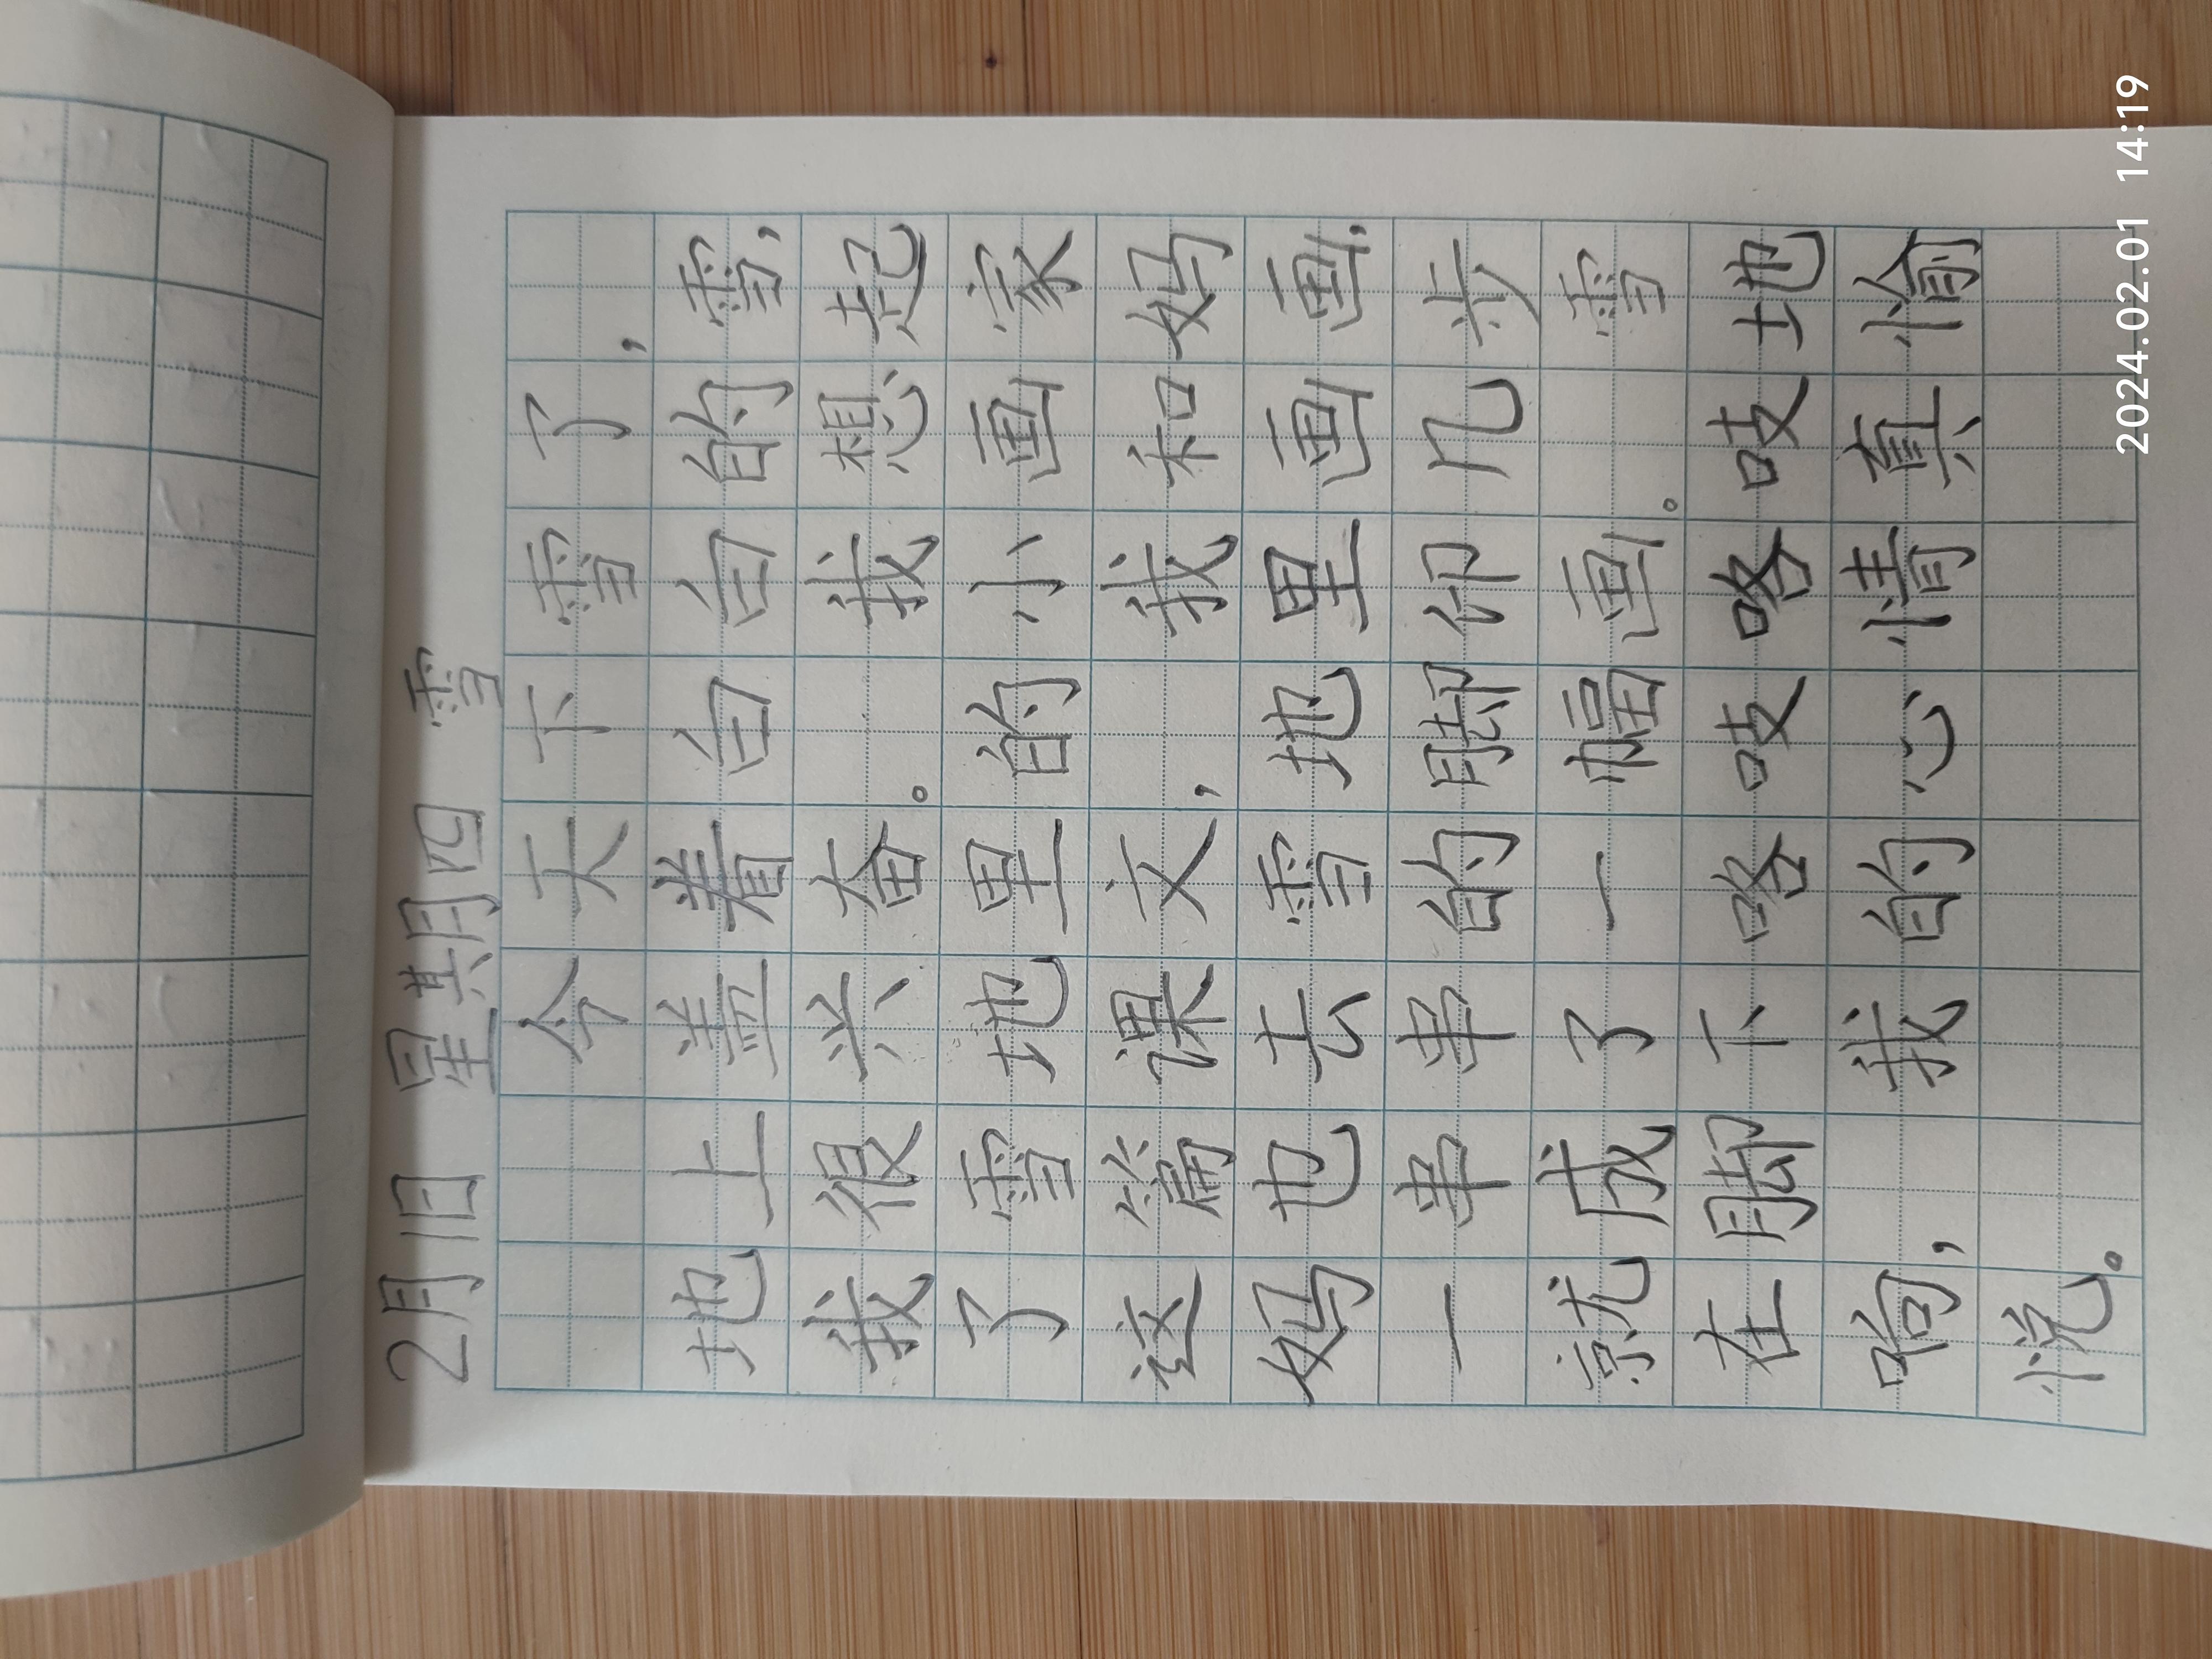 2月1日 星期四 雪
今天下雪了，
地上盖着白白的雪，
我很兴奋。我想起
了雪地里的小画家
这篇课文，我和妈
妈也去雪地里画画，
一串串的脚印几步
就成了一幅画。雪
在脚下咯吱咯吱地
响，我的心情真愉
悦。
2024.02.01 14:19